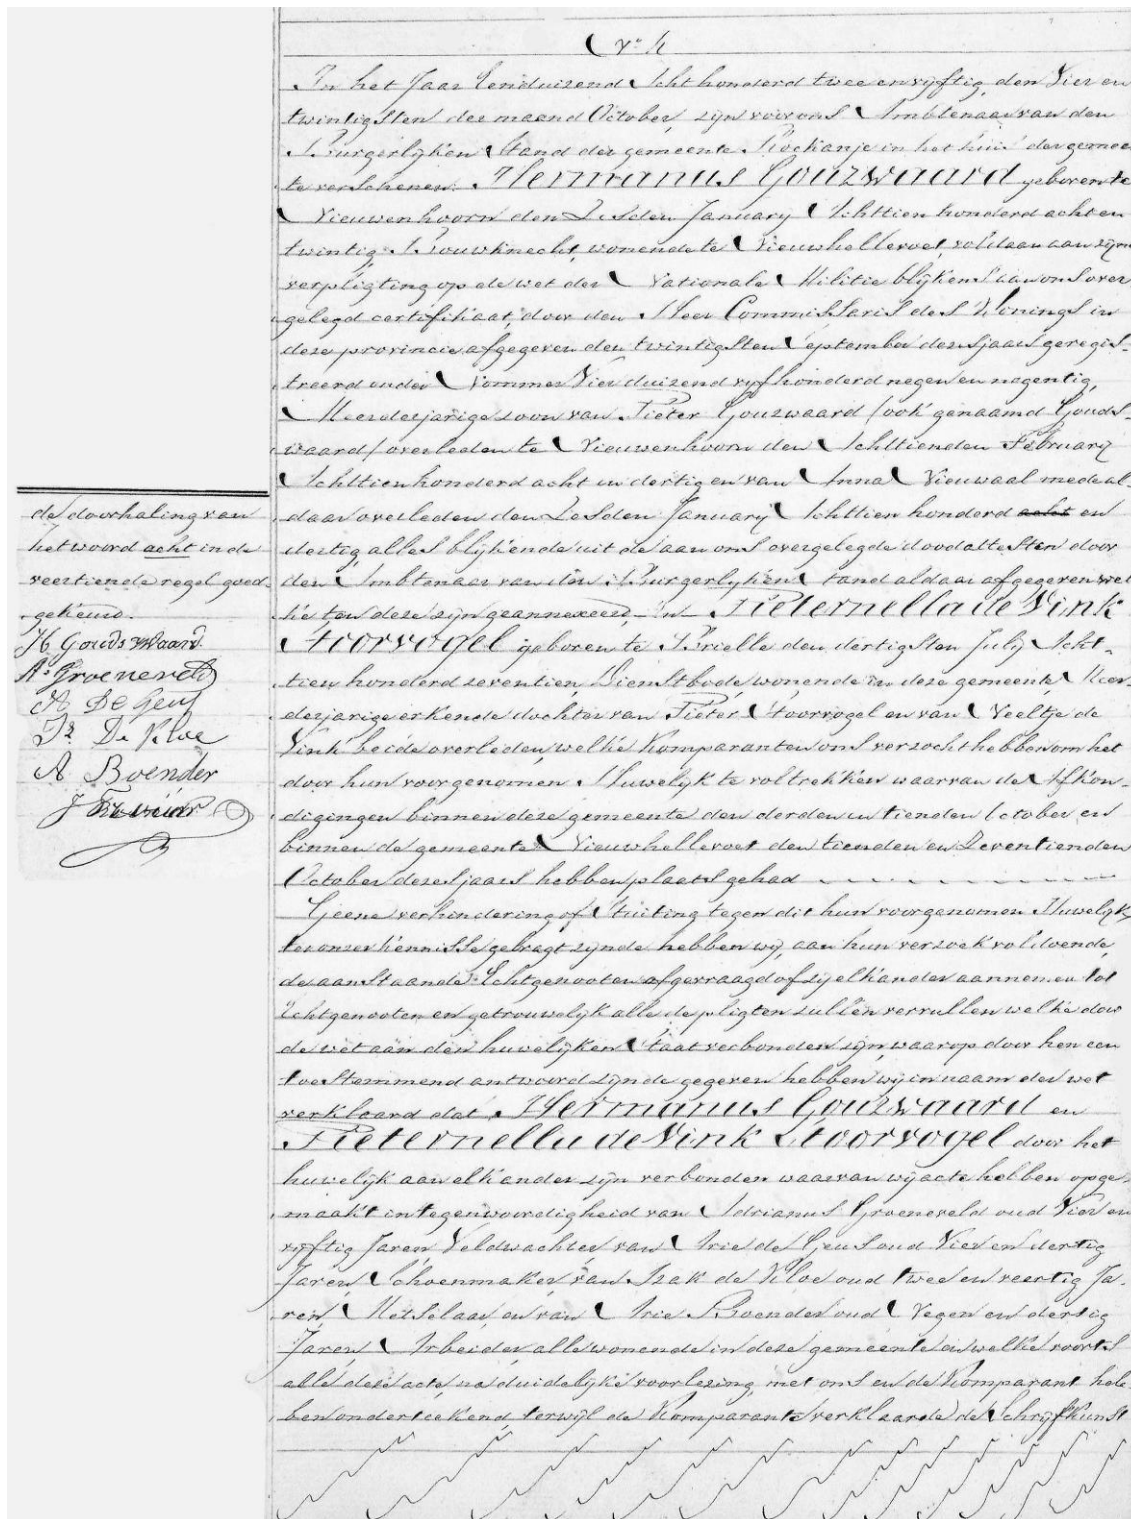 N° 4
In het Jaar Eenduizend Achthonderd twee en vyftig, den Vier en
twintigsten der maand October, zijn voor ons Ambtenaar van den
Burgerlyken Stand der gemeente Rockanje in het huis der gemeen
te verschenen: Hermanus Gouzwaard geboren te
Nieuwenhoorn den Zesden January Achttien honderd acht en
twintig Bouwknecht, wonende te Nieuwhellevoet, voldaan aan zijn
verpligting op de wet der Nationale Militie blijkens aan ons over
gelegd certifikaat, door den Heer Commissaris des Konings in
deze provincie afgegeven den twintigsten September dezes jaars geregis-
treerd onder Nommer Vier duizend vyfhonderd negen en negentig,
Meerderjarige zoon van Pieter Gouzwaard (ook genaamd Gouds-
waard) overleden te Nieuwenhoorn den Achttienden February
Achttienhonderd acht en dertig en van Anna Nieuwaal mede al-
daar overleden den Zesden January Achttien honderd acht en
dertig, alles blijkende uit de aan ons overgelegde doodattesten door
den Ambtenaar van den Burgerlyken Stand aldaar afgegeven wel
ke ten deze zijn geannexeerd, En Pieternella de Vink
Stoorvogel geboren te Brielle den dertigsten July Acht-
tien honderd zeventien, Dienstbode, wonende in deze gemeente, Meer-
derjarige erkende dochter van Pieter Stoorvogel en van Neeltje de
Vink beide overleden, welke Komparanten ons verzocht hebben om het
door hun voorgenomen Huwelyk te voltrekken waarvan de Afkon-
digingen binnen deze gemeente den derden en tienden October en
binnen de gemeente Nieuwhellevoet den tienden en Zeventienden
October dezes jaars hebben plaats gehad
Geene verhindering of Stuiting tegen dit hun voorgenomen Huwelyk
ter onzer kennisse gebragt zijnde hebben wij, aan hun verzoek voldoende,
de aanstaande Echtgenooten afgevraagd of zij elkander aannemen tot
Echtgenooten en getrouwelyk alle de pligten zullen vervullen welke door
de wet aan den huwelijken Staat verbonden zijn, waarop door hen een
toestemmend antwoord zijnde gegeven hebben wij in naam der wet
verklaard dat Hermanus Gouzwaard en
Pieternella de Vink Stoorvogel door het
huwelijk aan elkander zijn verbonden waarvan wij acte hebben opge-
maakt in tegenwoordigheid van Adrianus Groeneveld oud Vier en
vyftig Jaren, Veldwachter, van Arie de Geus oud Vier en dertig
Jaren, Schoenmaker, van Izak de Kloe oud twee en veertig Ja-
ren, Metselaar, en van Arie Boender oud Negen en dertig
Jaren Arbeider, alle wonende in deze gemeente en welke voorts
alle deze acte, na duidelijke voorlezing, met ons en de Komparant heb-
ben onderteekend, terwijl de Komparante verklaarde de Schryfkunst
de doorhaling van
het woord acht in de
veertiende regel goed-
gekeurd.
H Goudswaard.
A: Groeneveld
A De Geus
Iz De Kloe
A Boender